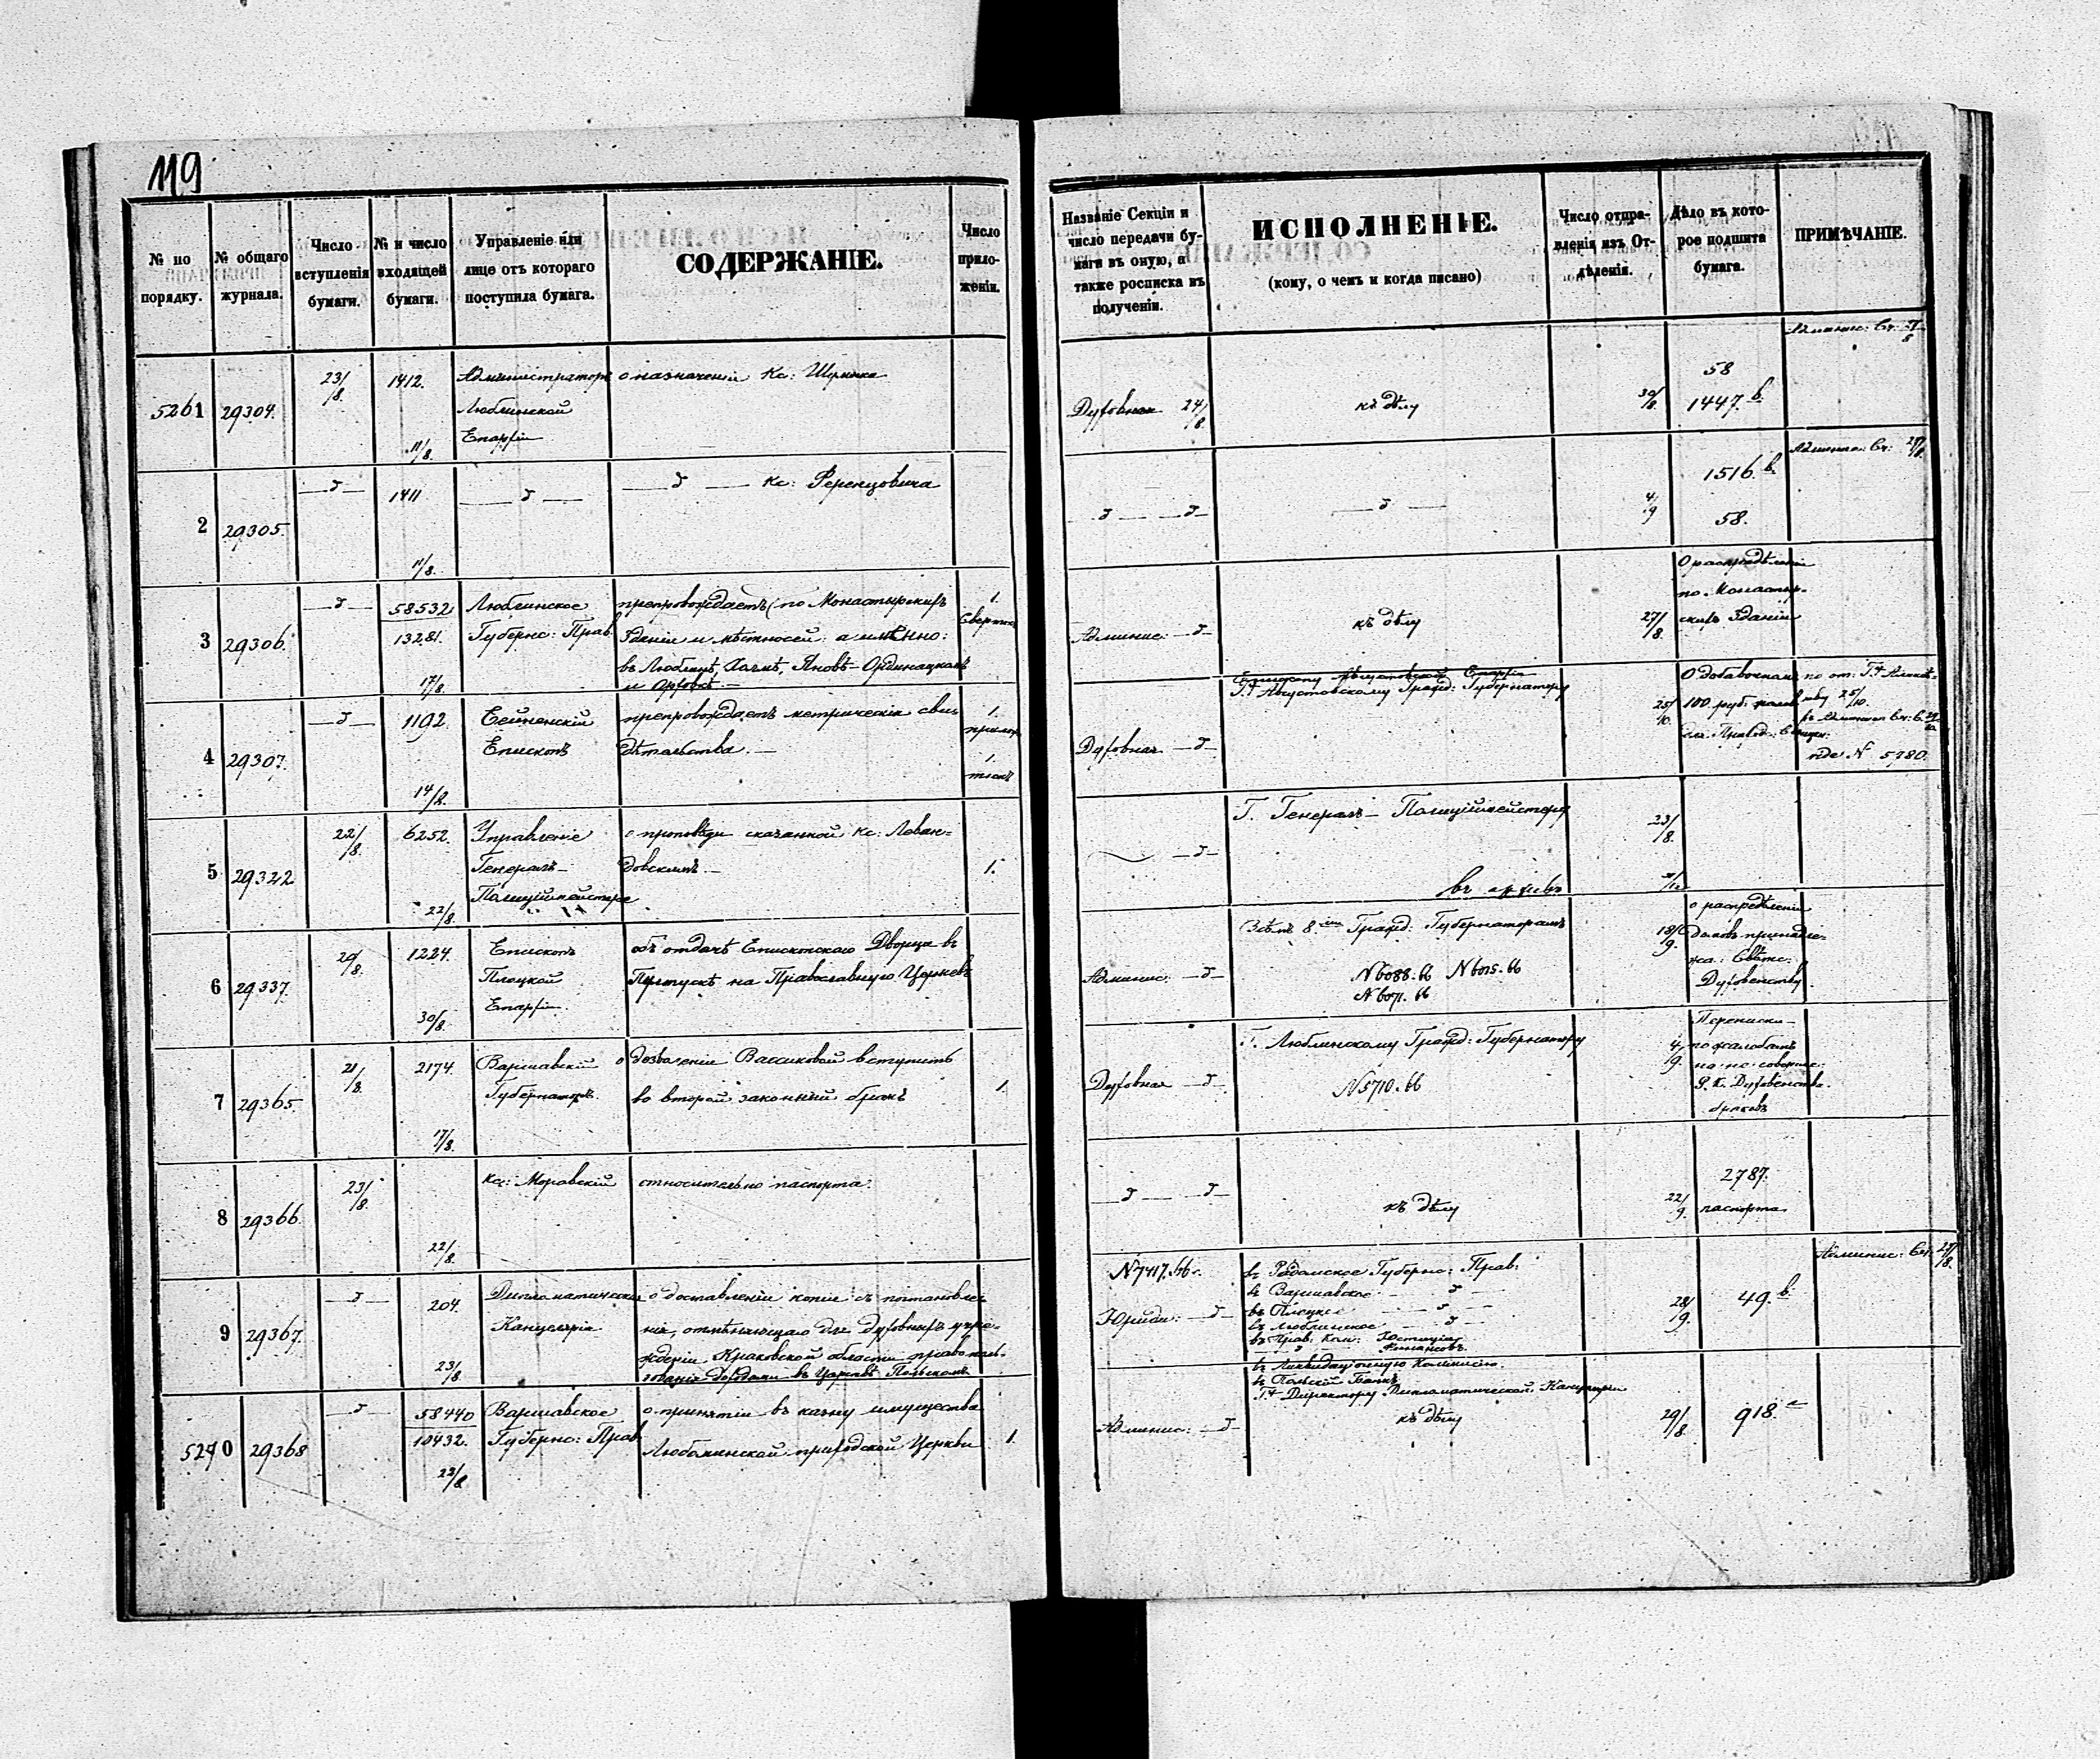 119
№ по порядку.
№ общаго журнала.
Число вступленія бумаги.
№ и число входящей бумаги.
Управленіе или лице отъ котораго поступила бумага.
СОДЕРЖАНІЕ.
Число приложеній.
Названіе Секціи и число передачи бумаги въ оную, а также росписка въ полученіи.
ИСПОЛНЕНІЕ.
(кому, о чемъ и когда писано)
Число отправленія изъ Отдѣленія.
Дѣло въ которое подшита бумага.
ПРИМѢЧАНІЕ.
5261 29304. 23/8. 1412. 11/8.
Администраторъ
Люблинской
Епархіи
о назначеніи Кс:
Духовная 24/8.
къ дѣлу
30/8.
58
1447. b.
2 29305. —д— 1411 11/8.
—д—
—д— Кс: Ференцовича
—д— —д—
—д—
4/9
1516. b.
58.
3 29306. —д— 58532 13281. 17/8.
Люблинское
Губернс: Прав.
препровождаетъ (по Монастырскихъ
Зданій и мѣстносей: а имѣнно:
въ Люблинѣ, Холмѣ, Яновѣ-Ординацкомъ
и Орховкѣ.—
1.
Админис: —д—
къ дѣлу
27/8.
О распредѣленіи
по Монастыр-
скихъ Зданій
4 29307. —д— 1192. 14/8.
Сейненскій
Епископъ
препровождаетъ метрическія сви-
дѣтельства.—
1.
1.
Духовная —д—
Епископу Августовской Епархіи
Г-у Августовскому Гражд: Губернатору
25/10.
О добавочныхъ
100 руб:
25/10.
№ 5780.
5 29322 22/8. 6252. 22/8.
Управленіе
Генералъ-
Полиціймейстера
о проповѣди сказанной Кс: Леван-
довскимъ.—
1.
—д—
Г. Генералъ-Полиціймейстеру
въ архивъ
23/8.
6 29337. 20/8. 1224. 30/8.
Епископъ
Плоцкой
Епархіи.
объ отдачѣ Епископскаго Дворца въ
Пултускѣ на Православную Церковь
Админис: —д—
Всѣмъ 8 Гражд: Губернаторамъ
N 6088. 66 N 6015. 66
N 6071. 66
18/9.
о распредѣленіи
домовъ принадле-
жа: Свѣтс:
Духовенству.
7 29365. 21/8. 2174. 17/8.
Варшавскій
Губернаторъ.
о дозволеніи Вассиковой вступить
во второй законный бракъ
1.
Духовная —д—
Г. Люблинскому Гражд: Губернатору
N 5710. 66
4/9.
Переписка
по жалобамъ
на не соверше:
Р. К. Духовенство.
браковъ
8 29366. 23/8. 22/8.
Кс: Моравскій
относительно паспорта.
—д— —д—
къ дѣлу
22/9.
2787.
паспорта
9 29367. —д— 204. 23/8
Дипломатическая
Канцелярія
о доставленіи копіи съ постановле-
нія, отмѣняющаго для духовныхъ учре-
жденій Краковской области право поль-
въ Царствѣ Польскомъ
N 7417. 66 г.
Юриди: —д—
въ Радомское Губернс: Прав:
въ Варшавское —д—
въ Плоцкое —д—
въ Люблинское —д—
въ Прав: Ком: Юстиціи
—д— Финансовъ
въ Ликвидаціонную Коммисію.
въ Польскій Банкъ
Г-у Директору Дипломатической Канцеляріи
28/9.
49. b.
Админис: Сч: 27/8.
5270 29368 —д— 58440 10432. 23/8
Варшавское
Губернс: Прав.
о принятіи въ казну имущества
Любоминской приходской Церкви
1.
Админис: —д—
къ дѣлу
29/8.
918. a